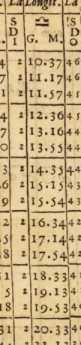 La Longit. La
S ♎ S
D D
I G. M. I
4 2 10.37 46
7 2 11.17 46
1 2 11.57 45
4 2 12.36 45
7 2 13.16 44
0 2 13.55 44
3 2 14.35 43
6 2 15.15 43
9 2 15.54 43
2 2 16.34 42
5 2 17.14 42
8 2 17.54 42
1 2 18.33 41
5 2 19.13 41
8 2 19.53 40
31 2 20.33 41